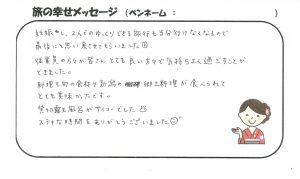 旅の幸せメッセージ (ペンネーム : )
妊娠中し、2人でのゆっくりできる旅行も当分行けなくなるので
最後にと思い来させてもらいました
従業員の方が皆さん とても良い方々で気持ちよく過ごすことが
できました。
料理も旬の食材や新潟の 郷土料理が食べられて
とても美味かったです。
貸切露天風呂がサイコーでした
ステキな時間をありがとうございました